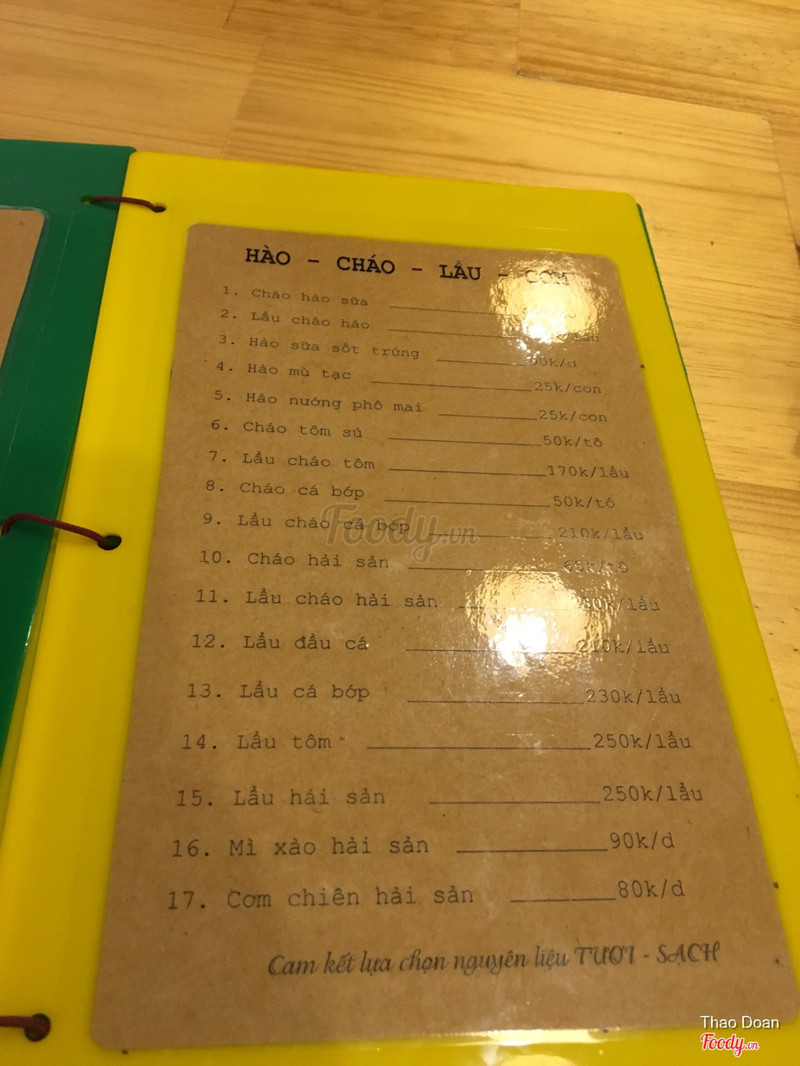 HÀO - CHÁO - LẨU - CƠM
1. Cháo hào sữa
2. Lẩu cháo hào
3. Hào sữa sốt trứng
4. Hào mù tạc 25k/con
5. Hào nướng phô mai 25k/con
6. Cháo tôm sú 50k/tô
7. Lẩu cháo tôm 170k/lẩu
8. Cháo cá bớp 50k/tô
9. Lẩu cháo cá bớp 210k/lẩu
10. Cháo hải sản 65k/tô
11. Lẩu cháo hải sản
12. Lẩu đầu cá 210k/lẩu
13. Lẩu cá bớp 230k/lẩu
14. Lẩu tôm 250k/lẩu
15. Lẩu hải sản 250k/lẩu
16. Mì xào hải sản 90k/d
17. Cơm chiên hải sản 80k/d
Cam kết lựa chọn nguyên liệu TƯƠI - SẠCH
Foody.vn
Thao Doan
Foody.vn